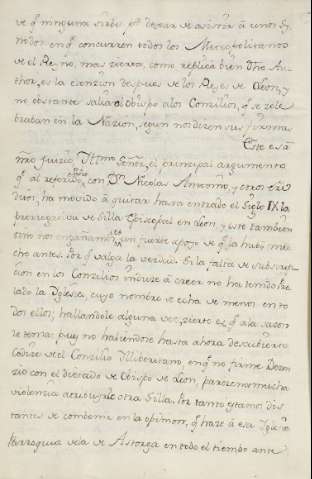 de qᵉ ninguna sirbe pª dejar de asistir à unos Si-
nodos en qᵉ concurren todos los Metropolitanos
de el Reyno, mas cierta, como replica bien Dho. Au-
thor, es la esencion despues de los Reyes de Leon, y
no obstante salia el Obispo à los Concilios, qᵉ se cele-
braban en la Nacion, segun nos dicen sus firmas.
Este es à
mio juizio Ittmo Señor, el principal argumento
qᵉ al referido, con Dⁿ Nicolas Antonio, y otros eru-
ditos, ha movido à quitar hasta entrado el Siglo IX la
prerrogativa de Silla Episcopal en Leon, y este tambien
sino nos engañamos, es un fuerte apoyo de qᵉ la hubo mu-
cho antes. Por qᵉ valga la verdad. Si la falta de subscrip-
cion en los Concilios induze à creer no ha tenido Pre-
lado la Yglesia, cuyo nombre se echa de menos en to-
dos ellos; hallandole alguna vez, cierto es, qᵉ à la sazon
le tenia: pues no haviendose hasta ahora descubierto
Codice de el Concilio Illiberitano, en qᵉ no firme Decen-
zio con el dictado de Obispo de Leon, parece mucha
violencia atribuirle otra Silla. Por tanto estamos dis-
tantes de combenir en la opinion, qᵉ hace à esa Yglesia
Parroquia de la de Astorga en todo el tiempo ante-